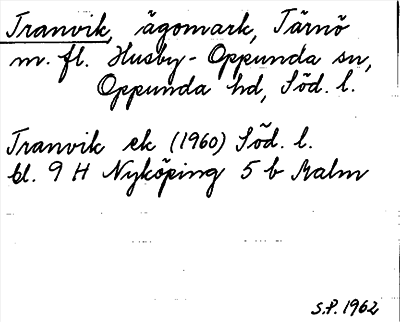 Tranvik, ägomark, Tärnö
m. fl. Husby-Oppunda sn,
Oppunda hd, Söd. l.
Tranvik ek (1960) Söd. l.
bl. 9 H Nyköping 5 b Malm
S.P. 1962